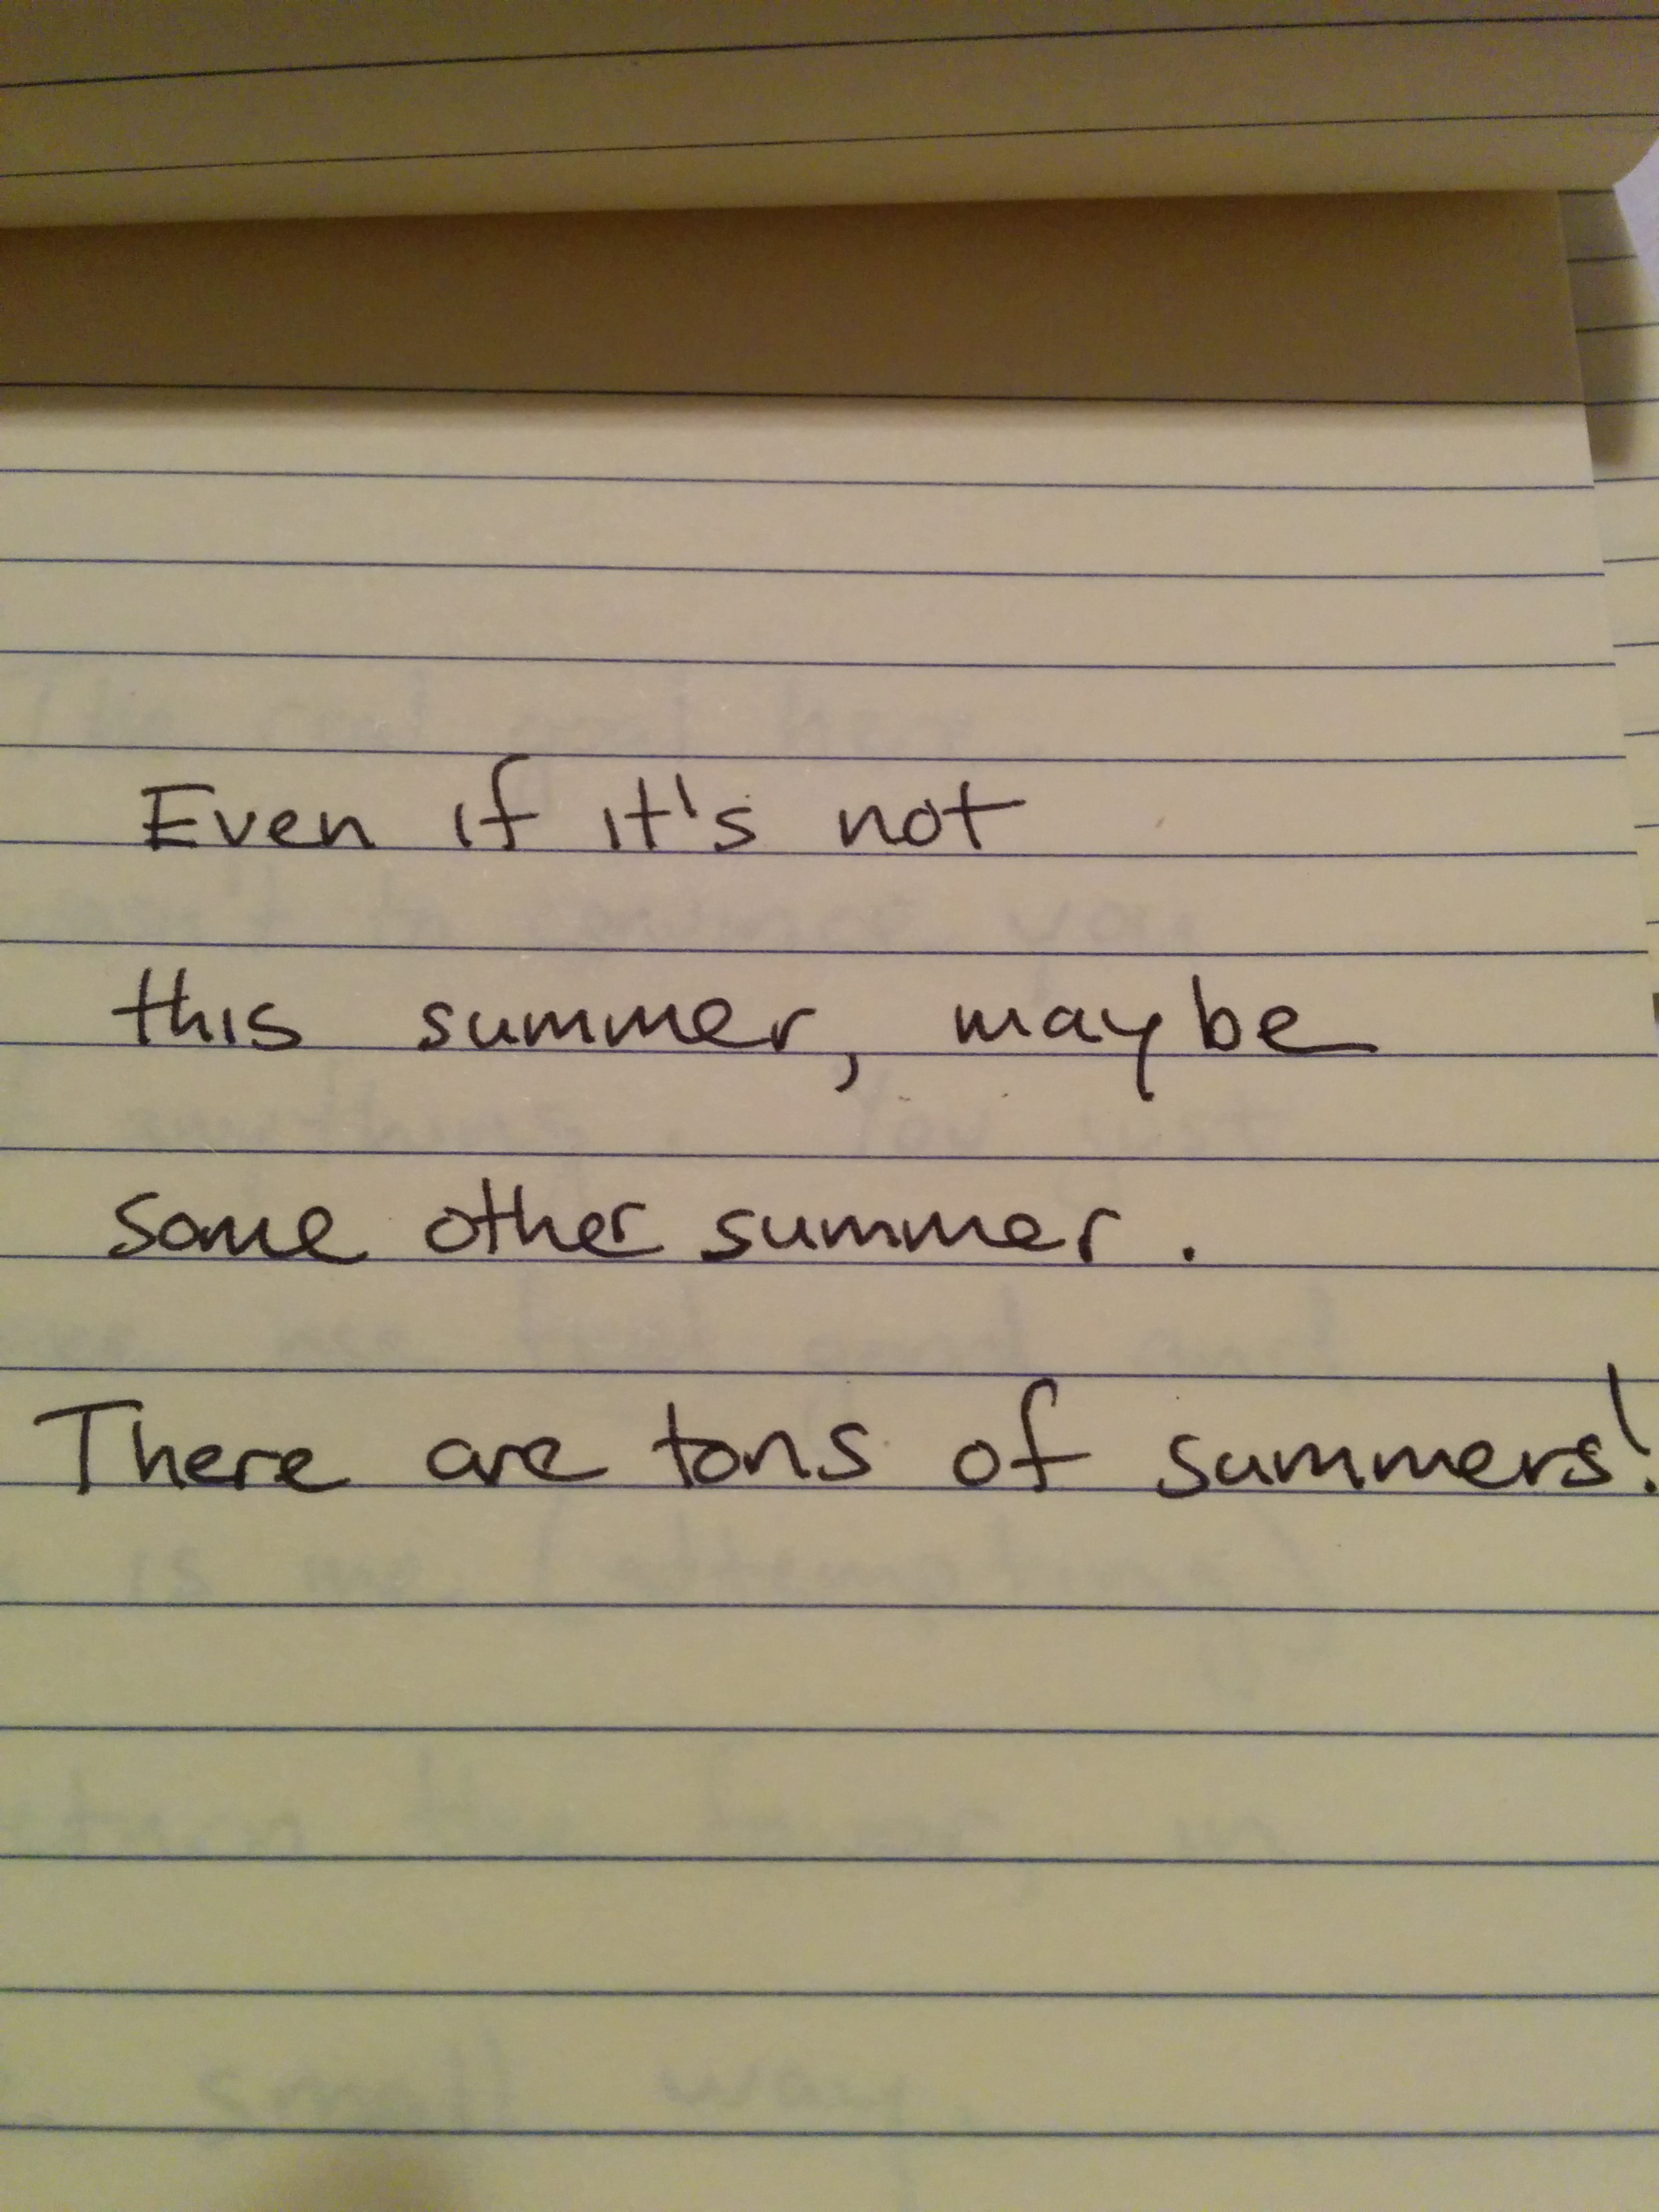 Even if it's not
this summer, maybe
some other summer.
There are tons of summers!